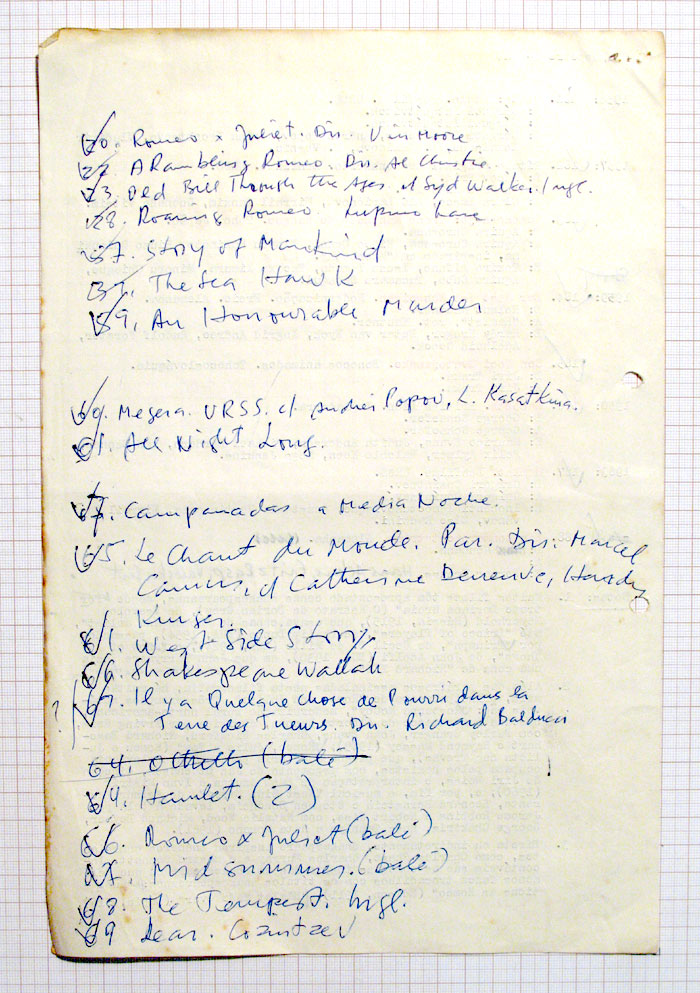 20. Romeo x Juliet. Dir. Vin Moore
22. A Rambling Romeo. Dir. Al Christie
23. Old Bill Through the Ages. c/ Syd Walker. Ingl.
28. Roaring Romeo. Lupino Lane
57. Story of Mankind
The Sea Hawk
59. An Honourable Murder
60. Megera. URSS. c/ Andrei Popov, L. Kasatkina.
61. All Night Long.
Campanadas a Media Noche.
65. Le Chant du Monde. Par. Dir. Marcel
Camus, c/ Catherine Deneuve, Hardy
Kruger.
61. West Side Story
66. Shakespeare Wallah
? 67. Il y a Quelque chose de Pourri dans la
Terre des Tueurs. Dir. Richard Balducci
64. Othello (balé)
64. Hamlet. (2)
66. Romeo x Juliet (balé)
67. Midsummer. (balé)
68. The Tempest. Ingl.
69 Lear. Cozintzev